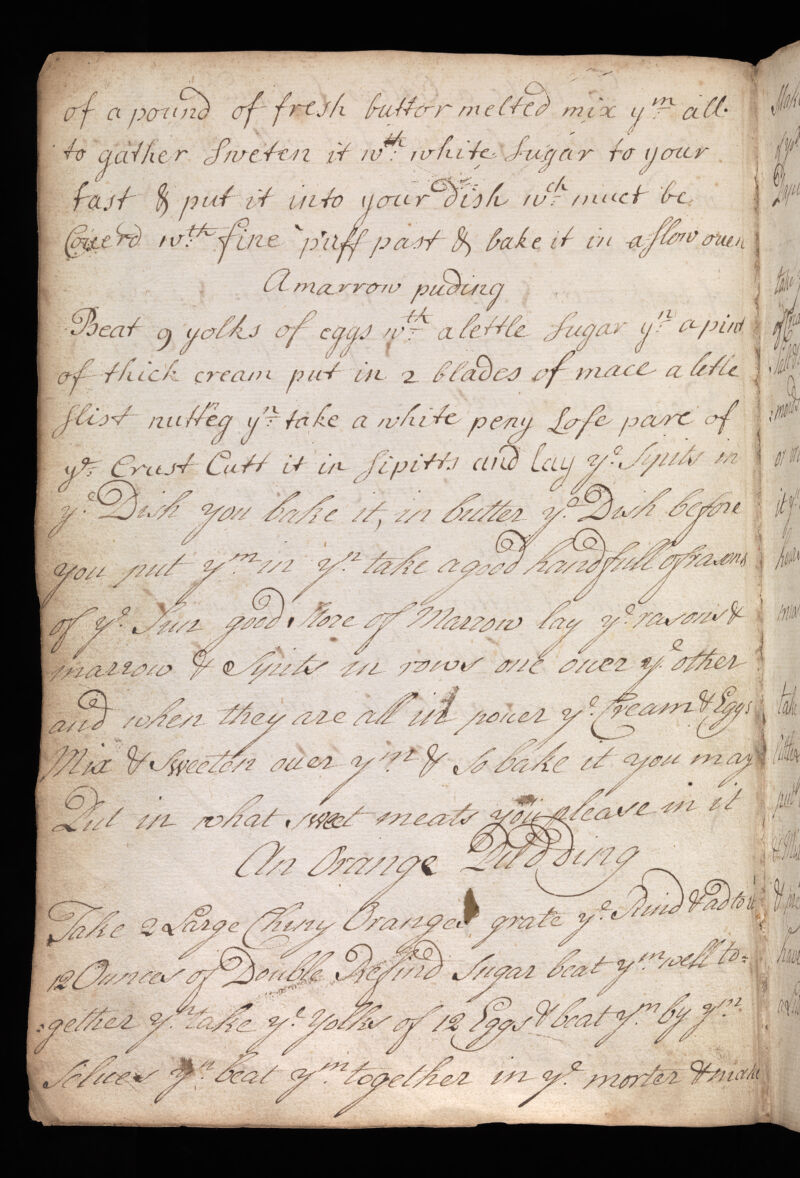 of a pound of fresh buttor melted mix yᵐ all
to gather Sweten it wᵗʰ white Sugar to your
tast & put it into your Dish wᶜʰ muct be
Couerd wᵗʰ fine puff past & bake it in a slow ouen
A marrow puding
Beat 9 yolks of eggs wᵗʰ a lettle Sugar yⁿ a pint
of thick cream put in 2 blades of mace a letle
slist nutteg yⁿ take a white peny Lofe pare of
yᵉ Crust Cutt it in sipitts and lay yᵉ Sipits in
yᵉ Dish you bake it, in butter yᵉ Dish before
you put yᵐ in yⁿ take a good handfull of rasons
of yᵉ Sun good store of Marrow lay yᵉ rasons &
marrow & Sipits in rows one ouer yᵉ other
and when they are all in power yᵉ Cream & Eggs
Mix & Sweeten ouer yᵐ & so bake it you may
Put in what sweet meats you please in it
An Orange Pudding
Take 2 Large Chiny Oranges grate yᵉ Rind & ad to it
12 Ounces of Double Refind Sugar beat yᵐ well to=
=gether yⁿ take yᵉ Yolks of 12 Eggs & beat yᵐ by yᵐ
Selues yⁿ beat yᵐ together in yᵉ morter & make